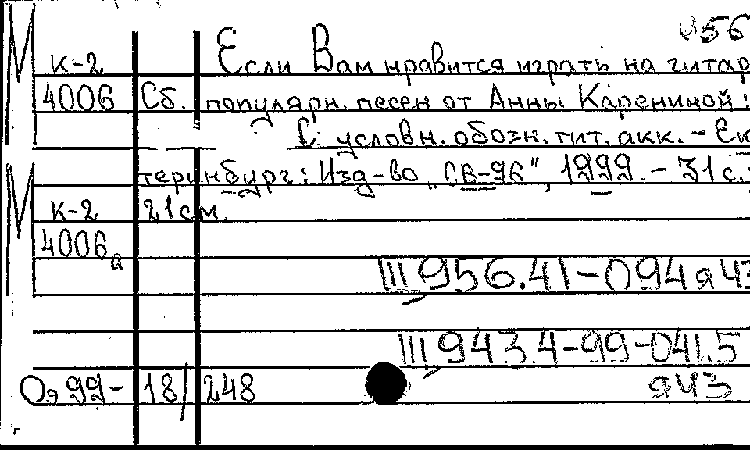 М
к-2
4006
Если Вам нравится играть на гитар
Сб. популярн. песен от Анны Карениной :
С условн. обозн. гит. акк. - Ек
теринбург: Изд-во "СВ-96", 1999. - 31 с.;
21 см.
М
к-2
4006а
III 956.41-094 я 43
III 943.4-99-041.5
я43
Оя 99- 18/248